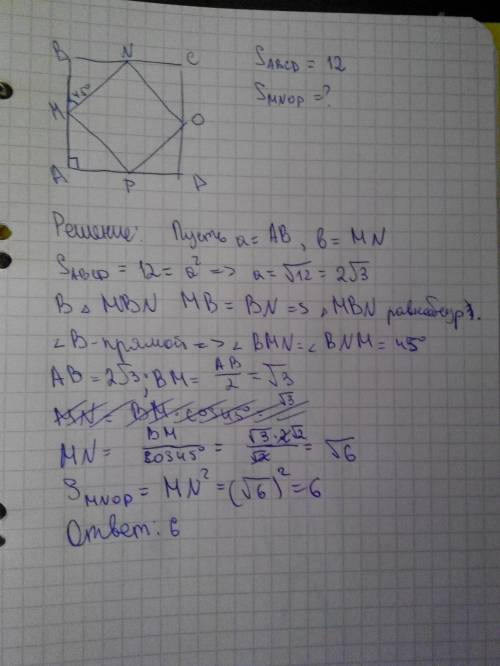 B N C
S_ABCD = 12
45°
S_MNOP = ?
M O
A P D
Решение: Пусть a = AB, b = MN
S_ABCD = 12 = a² => a = √12 = 2√3
В △ MBN MB = BN => △ MBN
∠B - прямой => ∠BMN = ∠BNM = 45°
AB = 2√3; BM = AB/2 = √3
MN = BM/cos45° = √3·2/√2 = √6
S_MNOP = MN² = (√6)² = 6
Ответ: 6